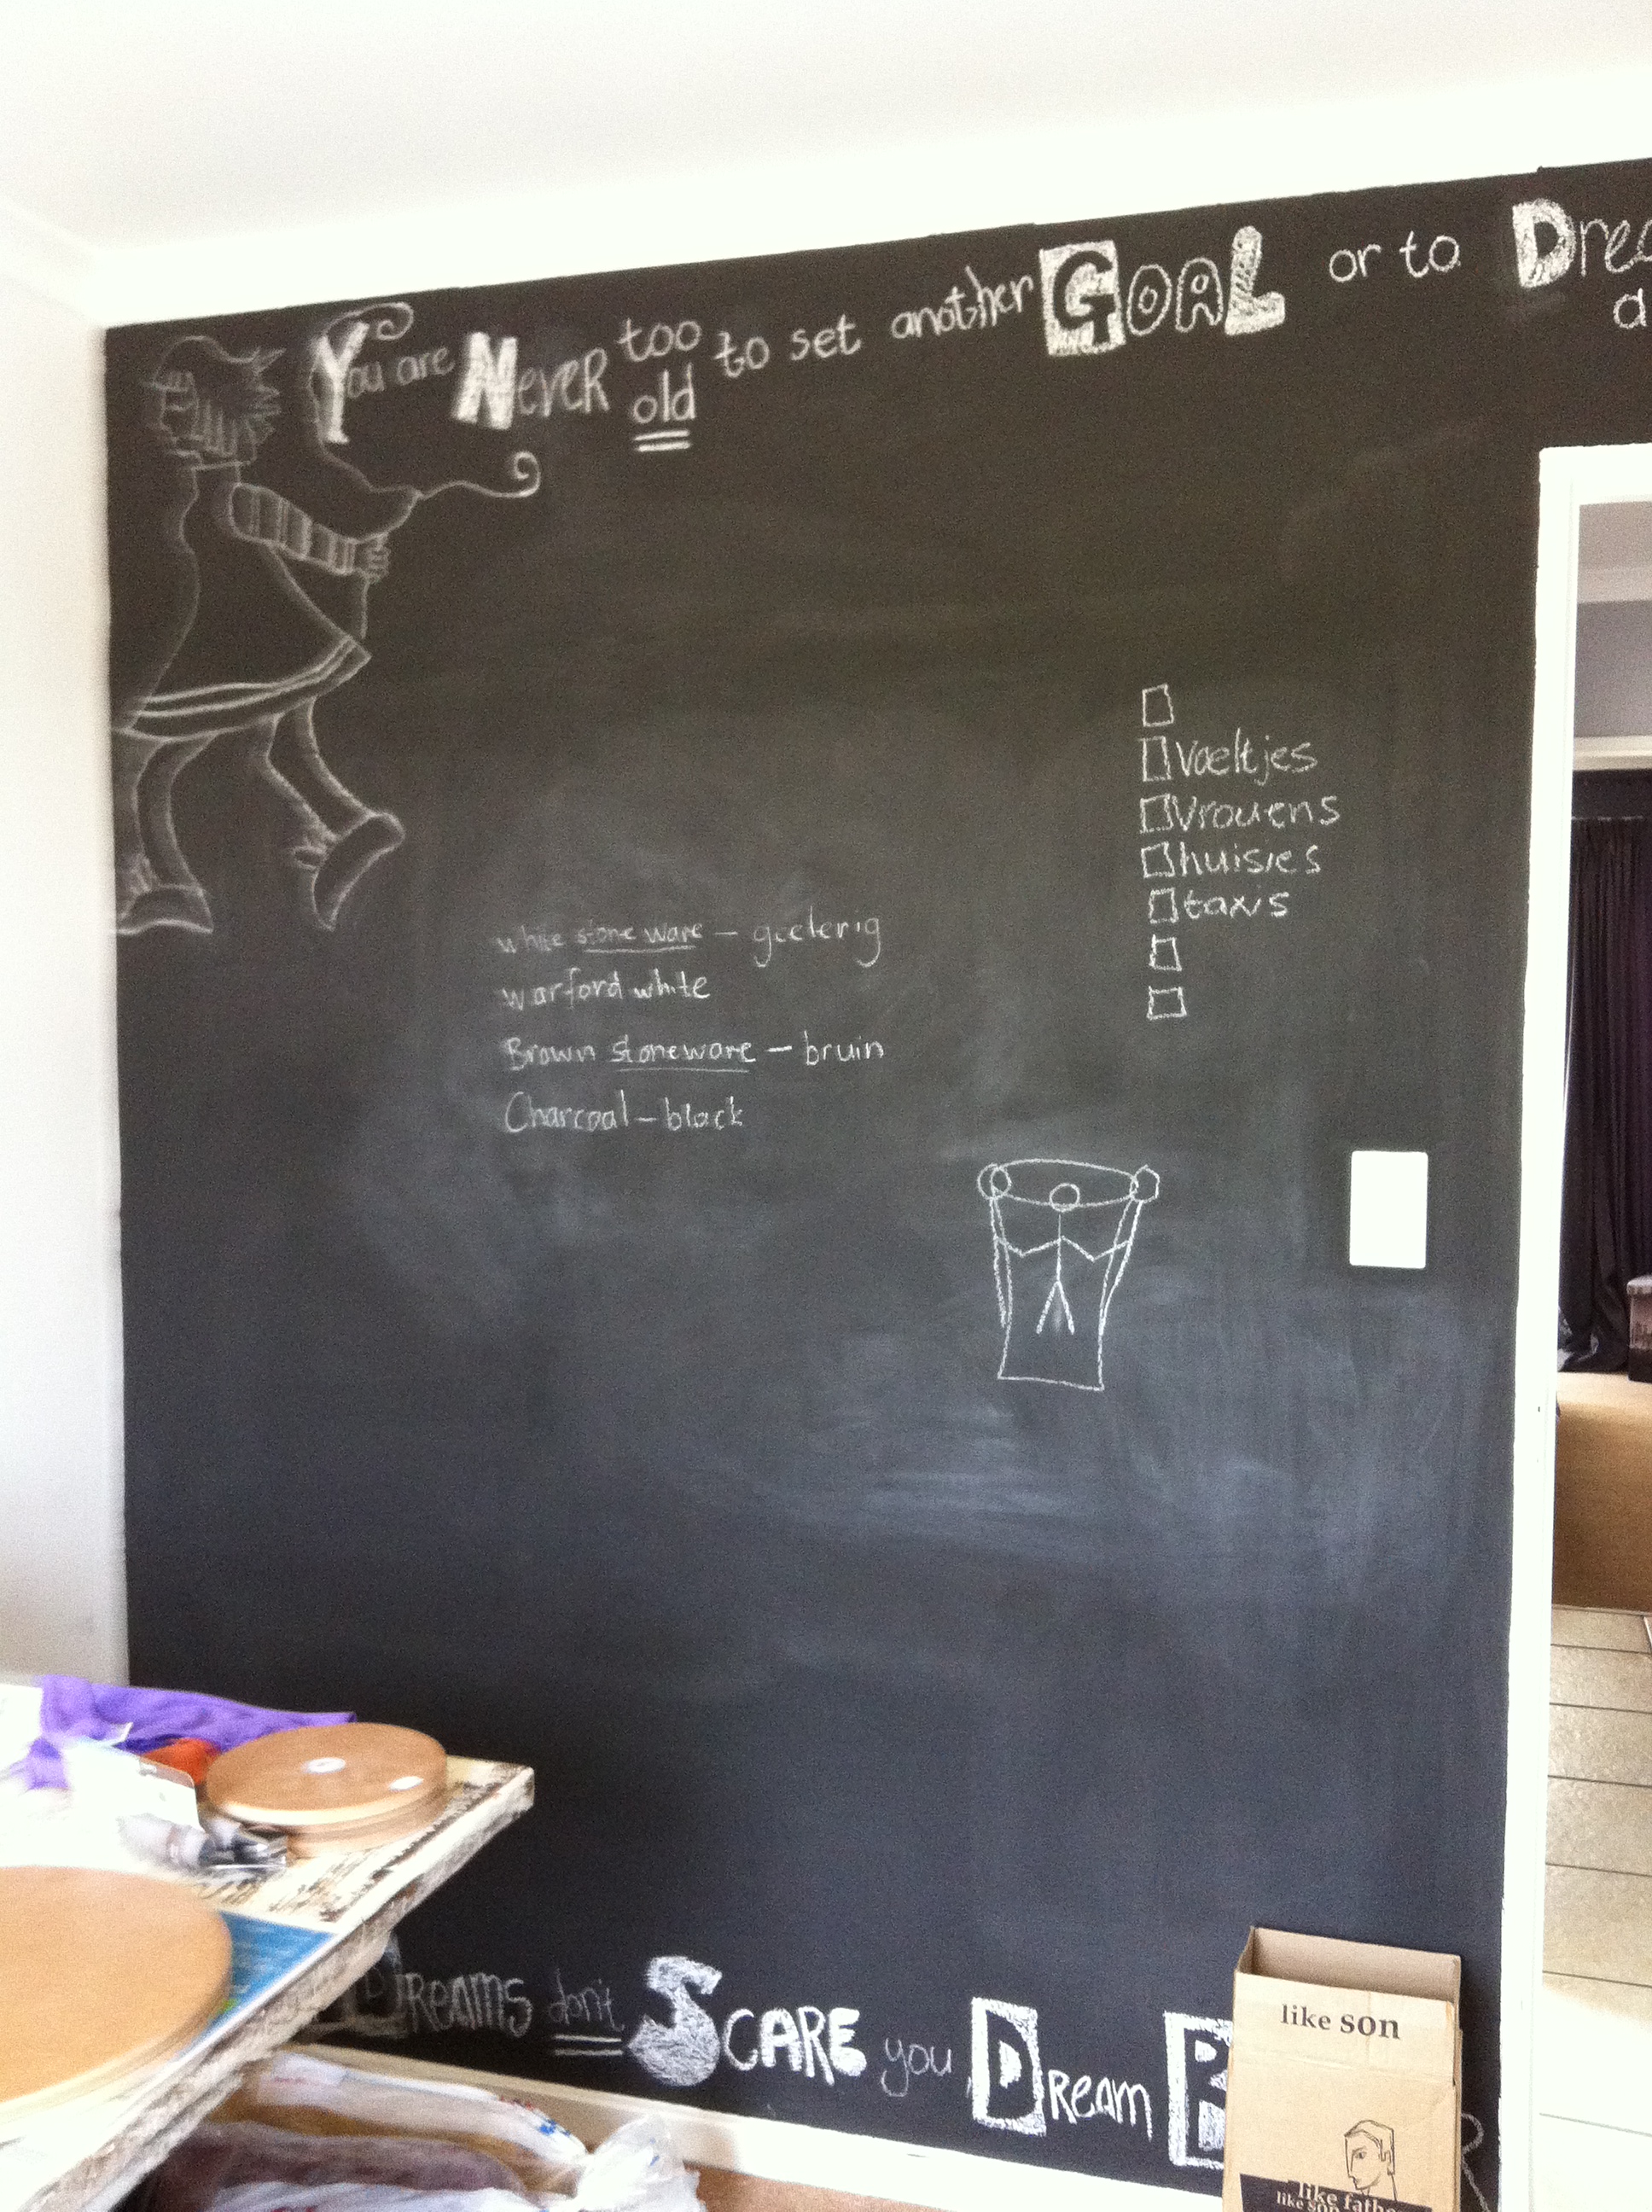 You are Never too old to set another GOAL or to Drea
a
Voeltjes
Vrouens
huisies
taxis
white stone ware – geelerig
warford white
Brown stoneware – bruin
Charcoal – black
Dreams don't SCARE you Dream B
like son
like fathe
like son